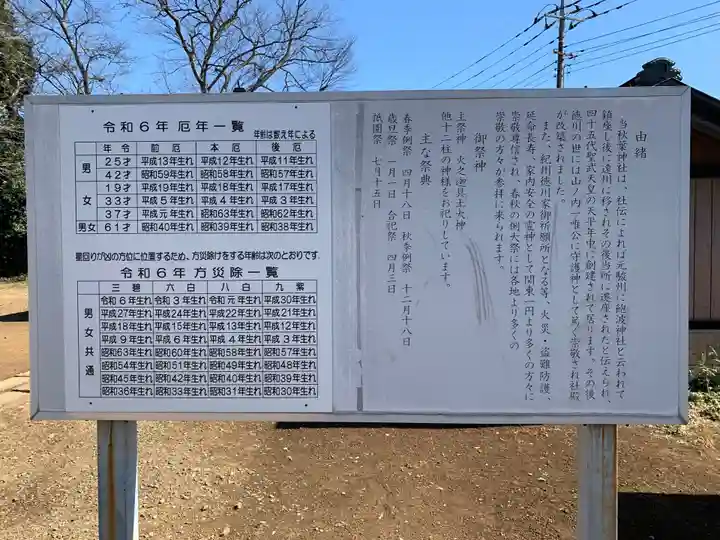 令和６年 厄年一覧
年齢は数え年による
年令 前厄 本厄 後厄
男 25才 平成13年生れ 平成12年生れ 平成11年生れ
42才 昭和59年生れ 昭和58年生れ 昭和57年生れ
女 19才 平成19年生れ 平成18年生れ 平成17年生れ
33才 平成５年生れ 平成４年生れ 平成３年生れ
37才 平成元年生れ 昭和63年生れ 昭和62年生れ
男女 61才 昭和40年生れ 昭和39年生れ 昭和38年生れ
星回りが凶の方位に位置するため、方災除けをする年齢は次のとおりです.
令和６年 方災除一覧
三碧 六白 八白 九紫
男女共通
令和６年生れ 令和３年生れ 令和元年生れ 平成30年生れ
平成27年生れ 平成24年生れ 平成22年生れ 平成21年生れ
平成18年生れ 平成15年生れ 平成13年生れ 平成12年生れ
平成９年生れ 平成６年生れ 平成４年生れ 平成３年生れ
昭和63年生れ 昭和60年生れ 昭和58年生れ 昭和57年生れ
昭和54年生れ 昭和51年生れ 昭和49年生れ 昭和48年生れ
昭和45年生れ 昭和42年生れ 昭和40年生れ 昭和39年生れ
昭和36年生れ 昭和33年生れ 昭和31年生れ 昭和30年生れ
由緒
当秋葉神社は、社伝によれば元駿川に鮑波神社と云われて
鎮座し後に遠川に移されその後当所に遷座されたと伝えられ、
四十五代聖武天皇の天平年中に創建されて居ります。その後
徳川の世には山ノ内一唯公に守護神として篤く崇敬され社殿
が改築されました。
また、紀州徳川家御祈願所となる等、火災・盗難防護、
延命長寿、家内安全の霊神として関東一円より多くの方々に
崇敬尊信され、春秋の例大祭には各地より多くの
崇敬の方々が参拝に来られます。
御祭神
主祭神 火之迦具土大神
他十二柱の神様をお祀りしています。
主な祭典
春季例祭 四月十八日 秋季例祭 十二月十八日
歳旦祭 一月一日 合祀祭 四月三日
祇園祭 七月十五日